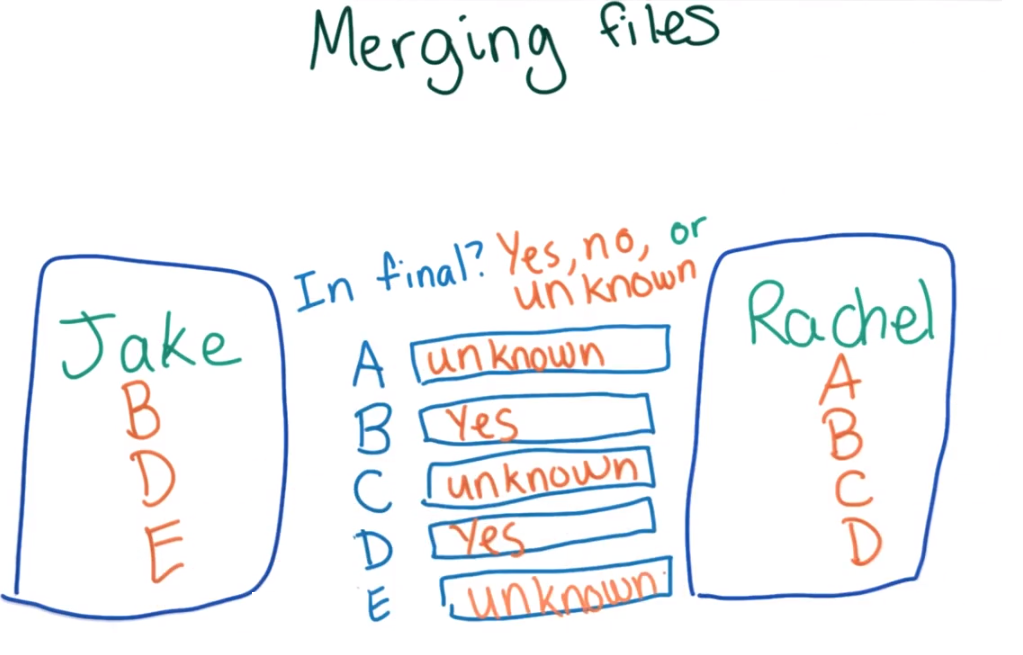 Merging files
Jake
B
D
E
In final? Yes, no, or
unknown
A unknown
B Yes
C unknown
D Yes
E unknown
Rachel
A
B
C
D